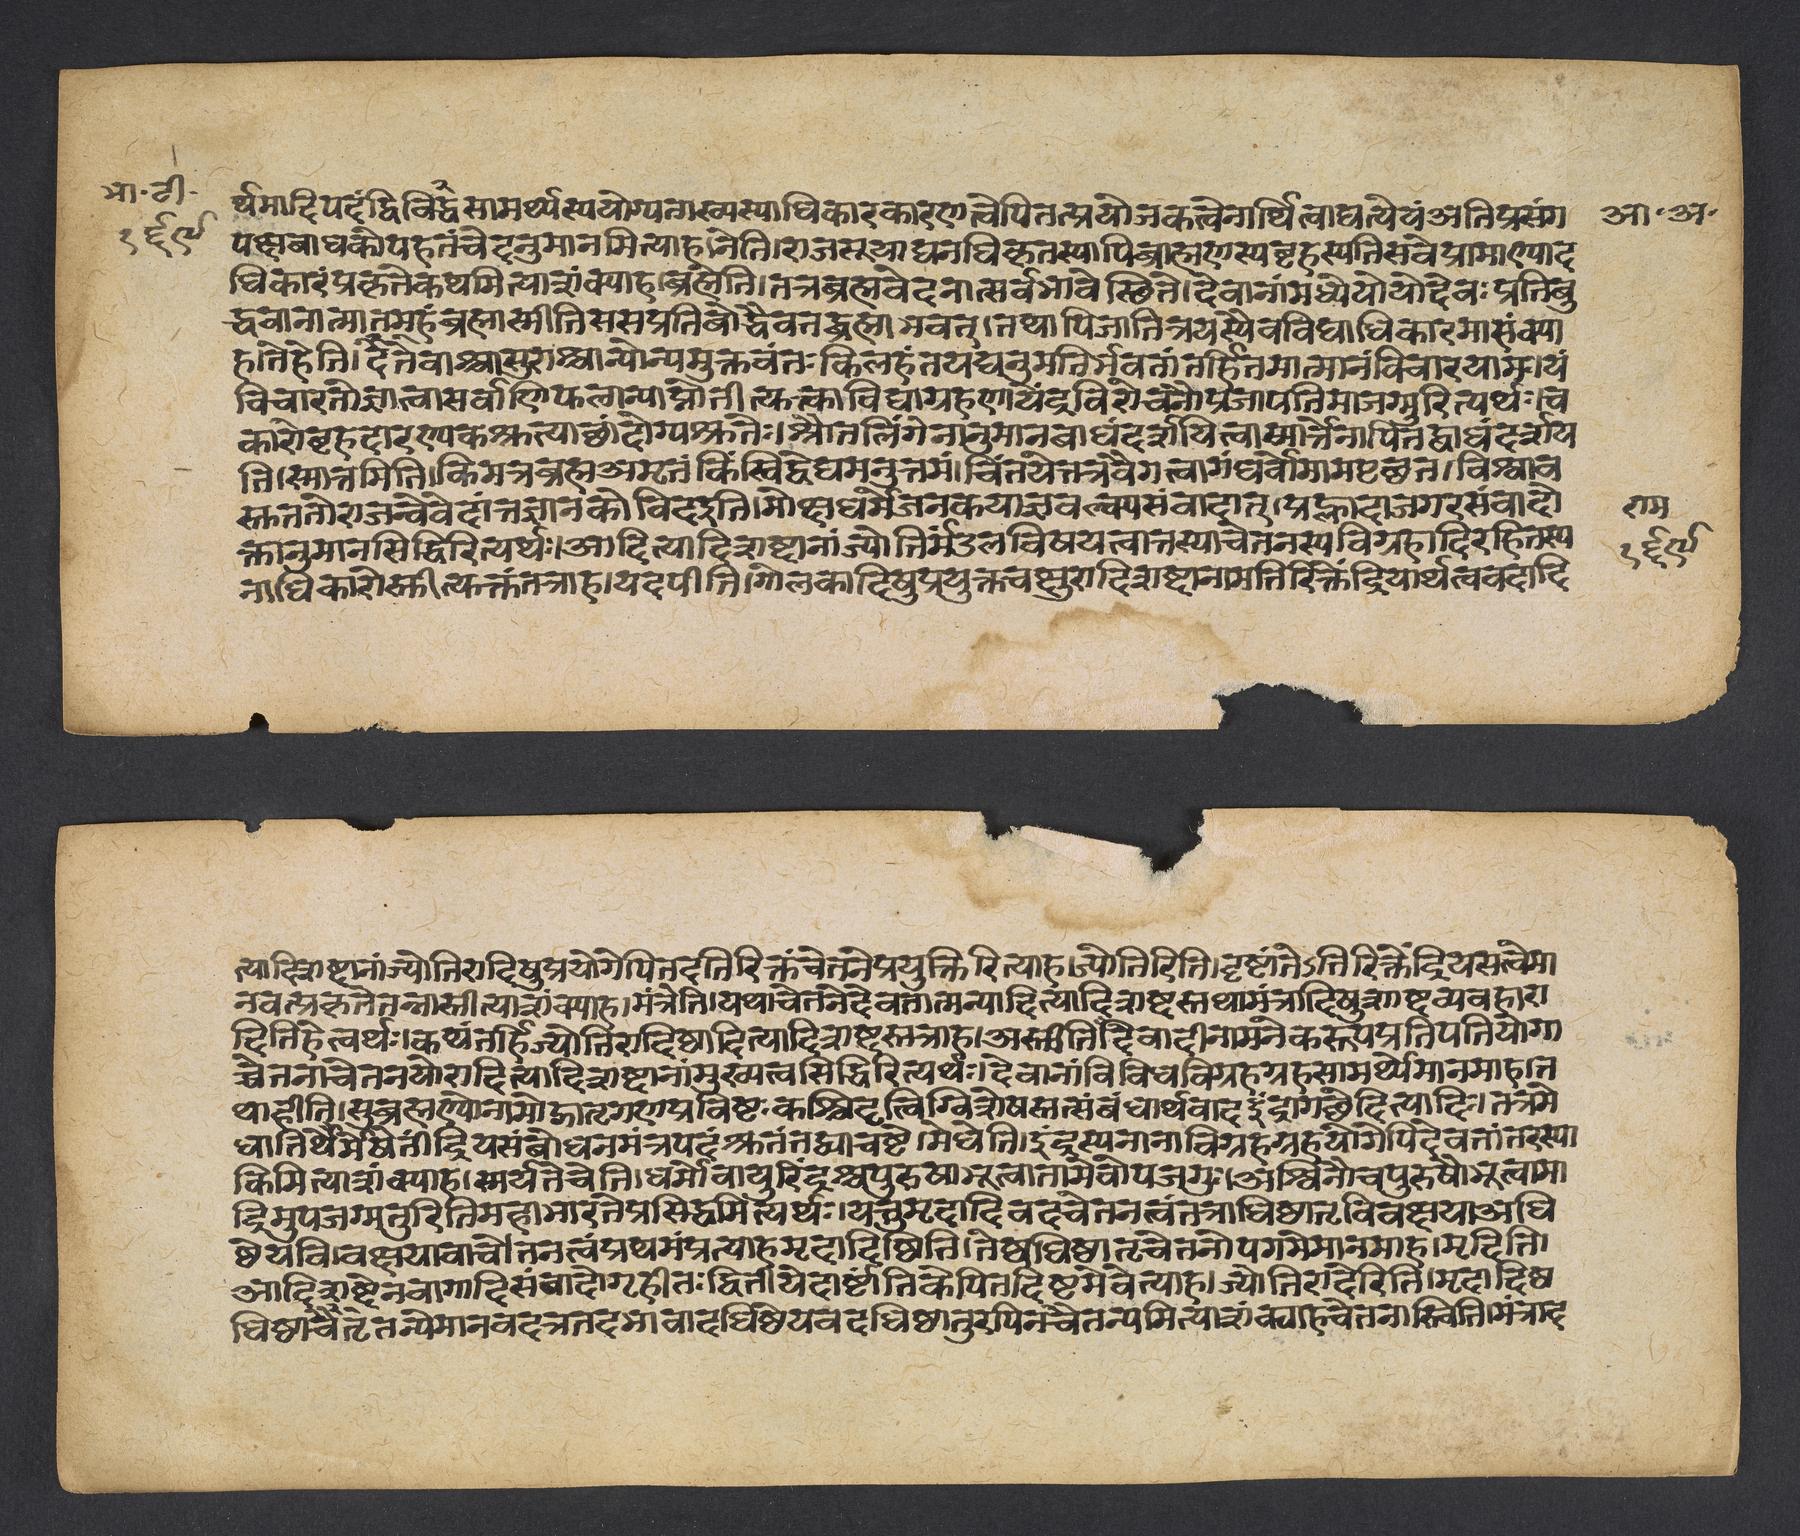 भा॰ टी॰
१६९
र्थमादिपदं द्विविद्धसामर्थ्यस्ययोग्यतारव्यस्याधिकारकारणत्वेपितत्प्रयोजकत्वेनार्थित्वाद्यत्येयं अतिप्रसंग
आ॰ अ॰
पक्षबाधकोपहतंचेदनुमानमित्याह।नेति।राजसूयाद्यनधिकृतस्यापिब्राह्मणस्यबृहस्पतिसवेप्रामाण्याद
धिकारंप्रकृतेकथमित्याशंक्याह।ब्रह्मेति।तत्रब्रह्मवेदनात्सर्वभावेस्छिते।देवानांमध्येयोयोदेवः प्रतिबु
द्धवानात्मानमहंब्रह्मास्मीतिससप्रतिबोद्धैवतद्ब्रह्माभवत्।तथापिजातित्रयस्यैवविद्याधिकारमाशंक्या
ह।तेहेति।देतेवाश्चासुराश्चान्योन्यमुक्तवंतः किलहंतयद्यनुमतिर्भवतांतर्हितमात्मानंविचारयामः।यं
विचारतोज्ञात्वासर्वाणिफलान्याप्नोतीत्युक्त्वाविद्याग्रहणायेंद्रविरोचनौप्रजापतिमाजग्मुरित्यर्थः।च
कारोबृहदारण्यकश्रुत्याछांदोग्यश्रुतेः।श्रौतलिंगेनानुमानबाधंदर्शयित्वास्मार्त्तेनापितद्बाधंदर्शय
ति।स्मार्त्तमिति।किमत्रब्रह्मअमृतं किंस्विद्वेद्यमनुत्तमं।चिंतयेत्तत्रवैगत्वागंधर्वोमामपृच्छत।विश्वाव
स्कततोराजन्वेवेदांतज्ञानकोविदइति।मोक्षधर्मेजनकयाज्ञवल्क्यसंवादात्।प्रह्लादाजगरसंवादो
राम
१६९
क्तानुमानसिद्धिरित्यर्थः।आदित्यादिशब्दानांज्योतिर्मंडलविषयत्वात्तस्याचेतनस्यविग्रहादिरहितस्य
नाधिकारोस्तीत्युक्तंतत्राह।यदपीति।गोलकादिषुप्रयुक्तचक्षुरादिशब्दानामतिरिक्तेंद्रियार्थत्ववदादि
त्यादिशब्दानांज्योतिरादिषुप्रयोगेपितदतिरिक्तंचेतनेप्रयुक्तिरित्याह।ज्योतिरिति।दृष्टांतेऽतिरिक्तेंद्रियसत्वेमा
नवत्प्रकृतेतन्नास्तीत्याशंक्याह।मंत्रेति।यथाचेतनेदेवतात्मन्यादित्यादिशब्दस्तथामंत्रादिषुशब्दव्यवहारा
दितिहेत्वर्थः।कथंतर्हिज्योतिरादिष्वादित्यादिशब्दस्तत्राह।अस्तीति।देवादीनामनेकरूपप्रतिपत्तियोगा
च्चेतनाचेतनयोरादित्यादिशब्दानांमुख्यत्वसिद्धिरित्यर्थः।देवानांविविधविग्रहग्रहसामर्थ्येमानमाह।त
थाहीति।सुब्रह्मण्योनामोद्गातृगणप्रविष्टः कश्चिदृत्विग्विशेषस्तत्संबंधार्थवादइंद्रागछेदित्यादिः।तत्रमे
धातिर्थेर्मेषेतींद्रियसंबोधनमंत्रपदंश्रुतंतद्व्याचष्टे।मेधेति।इंद्रस्यनानाविग्रहग्रहयोगेपिदेवतांतरस्या
किमित्याशंक्याह।स्मर्यतेचेति।धर्मोवायुरिंद्रश्चपुरुषाभूत्वातामेवोपजग्मुः।अश्विनौचपुरुषौभूत्वामा
द्रिमुपजग्मतुरितिमहाभारतेप्रसिद्धमित्यर्थः।यत्तुमृदादिवदचेतनत्वंतत्राधिष्ठातृविवक्षयाअधि
ष्ठेयविवक्षयावाचेतनत्वंप्रथमंप्रत्याहमृदादिष्विति।तेष्वधिष्ठातृचेतनोपगमेमानमाह।मृदिति।
आदिशब्देनवागादिसंवादोगृहीतः द्वितीयेदार्ष्टांतिकेपितदिष्टमेवेत्याह।ज्योतिरादेरिति।मृदादिष्व
धिष्ठातृचैतन्येमानवदत्रतदभावादधिष्ठेयवदधिष्ठातुरपिनचैतन्यमित्याशंक्याहचेतनास्त्विति।मंत्राद